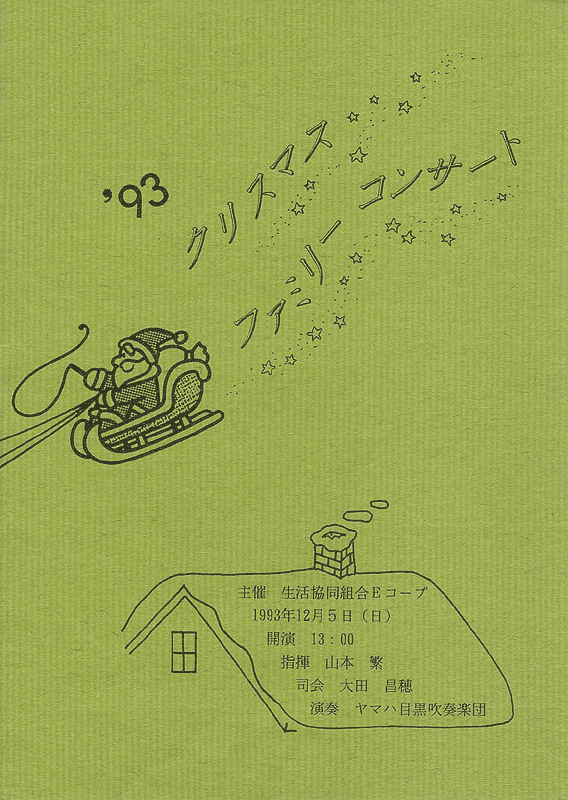 '93
クリスマス
ファミリー コンサート
主催　生活協同組合Eコープ
1993年12月5日（日）
開演　13：00
指揮　山本　繁
司会　大田　昌穂
演奏　ヤマハ目黒吹奏楽団